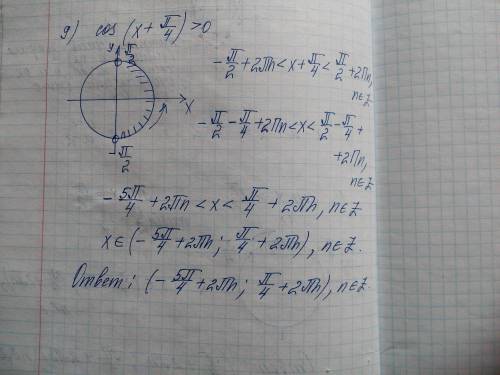 g) cos (x + π/4) > 0
y π/2
-π/2 + 2πn < x + π/4 < π/2 + 2πn,
n∈Z
x
-π/2
-π/2 - π/4 + 2πn < x < π/2 - π/4 +
+ 2πn,
n∈Z
-5π/4 + 2πn < x < π/4 + 2πn, n∈Z
x∈(-5π/4 + 2πn; π/4 + 2πn), n∈Z.
Ответ: (-5π/4 + 2πn; π/4 + 2πn), n∈Z.